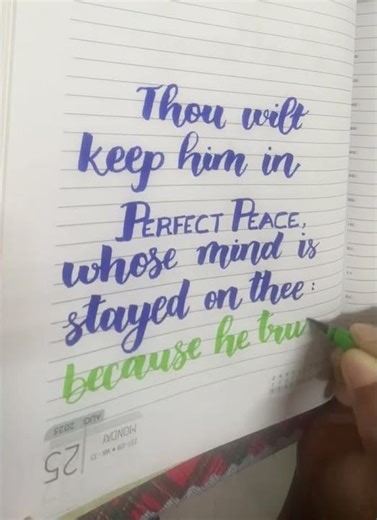 Thou wilt
keep him in
PERFECT PEACE,
whose mind is
stayed on thee:
because he tru
25
MONDAY
AUG. 2025